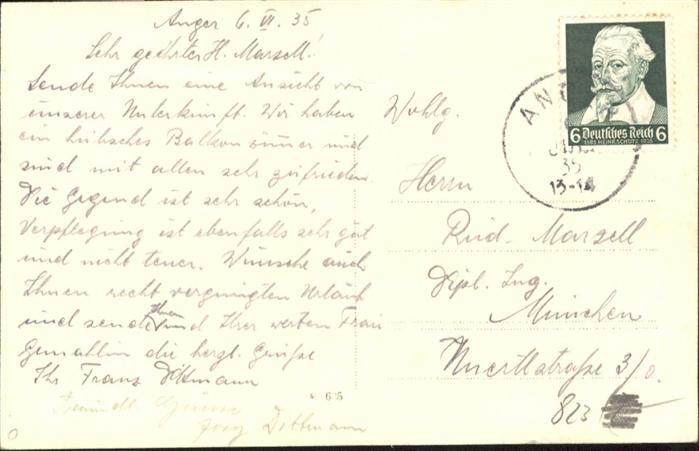 Anger 6. VI. 35
Sehr geehrter H. Marzell!
Sende Ihnen eine Ansicht von
unserer Unterkunft. Wir haben
ein hübsches Balkonzimmer und
sind mit allem sehr zufrieden.
Die Gegend ist sehr schön,
Verpflegung ist ebenfalls sehr gut
und nicht teuer. Wünsche auch
Ihnen recht vergnügten Urlaub
und sende Ihnen und Ihrer werten Frau
Gemahlin die herzl. Grüße
Ihr Franz Dittmann
Grüsse
Dittmann
* 675
Wohlg.
Herrn
Rud. Marzell
Dipl. Ing.
München
straße 3/0.
823
6 Deutsches Reich 6
1585 HEINR. SCHÜTZ 1935
ANG
35
13-14
0